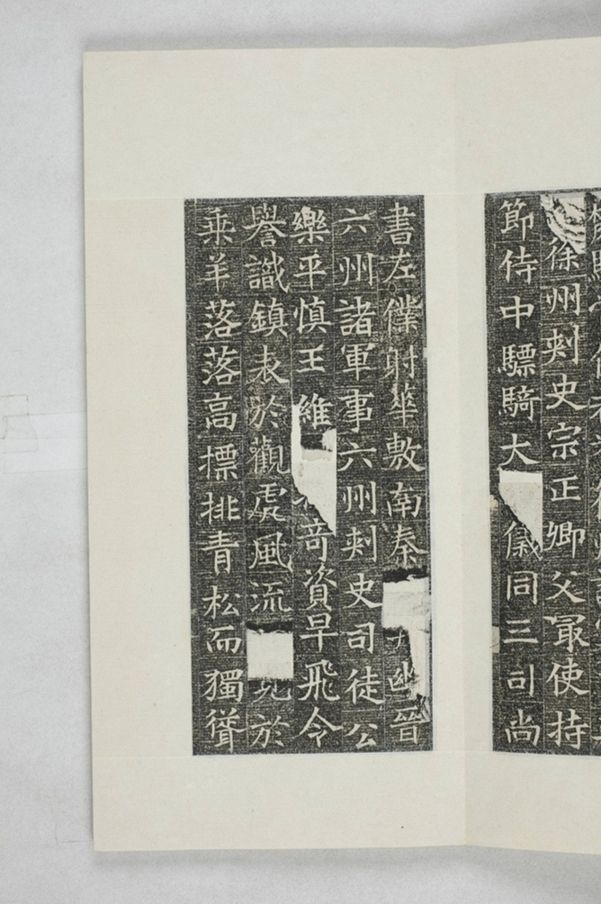 徐州刾史宗正卿父冣使持
節侍中驃騎大儀同三司尚
書左僕射華敷南秦幽晉
六州諸軍事六州刾史司徒公
樂平慎王維奇資早飛令
譽識鎮表於觀處風流見於
乘羊落落高摽排青松而獨聳